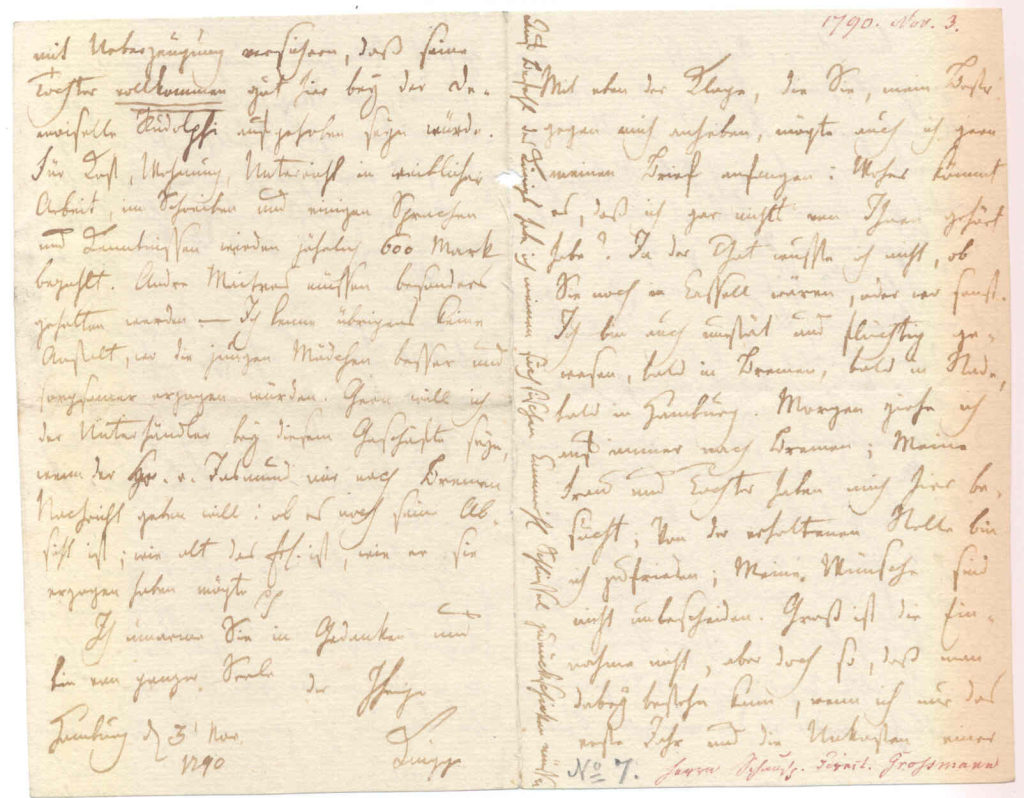 mit Ueberzeugung versichern, daß seine
Tochter vollkommen gut hier bey der De-
moiselle Rudolphi aufgehoben seyn würde.
Für Kost, Wohnung, Unterricht in weiblicher
Arbeit, im Schreiben und einigen Sprachen
und Kenntnissen werden jährlich 600 Mark
bezahlt. Andre Maitres müssen besonders
gehalten werden — Ich kenne übrigens keine
Anstalt, wo die jungen Mädchen besser und
sorgsamer erzogen würden. Gern will ich
der Unterhändler bey diesem Geschäfte seyn,
wenn der Hr. v. Jasmund mir nach Bremen
Nachricht geben will: ob es noch seine Ab-
sicht ist; wie alt das Frl. ist, wie er sie
erzogen haben mögte pp
Ich umarme Sie in Gedanken und
bin von ganzer Seele
der Ihrige
Hamburg d 3t Nov.
1790
Knigge
Auf Befehl des Königs habe ich meinen Schlüssel zurückschicken müssen
1790. Nov. 3.
Mit eben der Klage, die Sie, mein Bester!
gegen mich anheben, mögte auch ich gern
meinen Brief anfangen: Woher kömmt
es, daß ich gar nichts von Ihnen gehört
habe? In der That wusste ich nicht, ob
Sie noch in Cassell wären, oder wo sonst.
Ich bin auch unstät und flüchtig ge-
wesen, bald in Bremen, bald in Stade,
bald in Hamburg. Morgen ziehe ich
auf immer nach Bremen; Meine
Frau und Tochter haben mich hier be-
sucht; Von der erhaltenen Stelle bin
ich zufrieden; Meine Wünsche sind
nicht unbescheiden. Groß ist die Ein-
nahme nicht, aber doch so, daß man
dabey bestehn kann, wenn ich nur das
erste Jahr und die Unkosten einer
No 7. Herrn Schausp. Direct. Grossmann